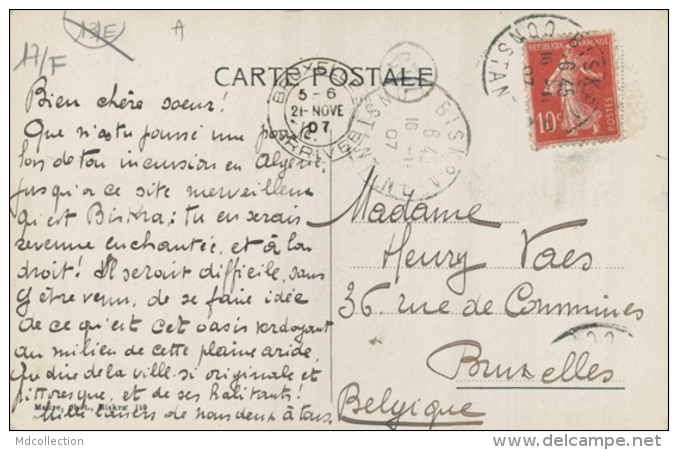 13/E
A
17/F
CARTE POSTALE
BRUXELLES
5-6
21-NOVE
07
ARRIVÉE
BISKRA
6 45
16 -11
07
CONSTANTINE
BISKRA
6 45
16 -11
07
CONSTAN
REPUBLIQUE FRANÇAISE
10c
POSTES
Bien chère soeur!
Que n'as tu poussé une pointe
lors de ton incursion en Algérie,
jusqu'à ce site merveilleux
qu'est Biskra; tu en serais
revenue enchantée, et à bon
droit! Il serait difficile, sans
y être venu, de se faire idée
de ce qu'est cet oasis verdoyant
au milieu de cette plaine aride,
Que dire de la ville si originale et
pittoresque, et de ses habitants!
Mille baisers de nous deux à tous.
Madame
Henry Vaes
36, rue de Commines
Bruxelles
Belgique
Maure, phot., Biskra 110
Mdcollection
www.delcampe.net